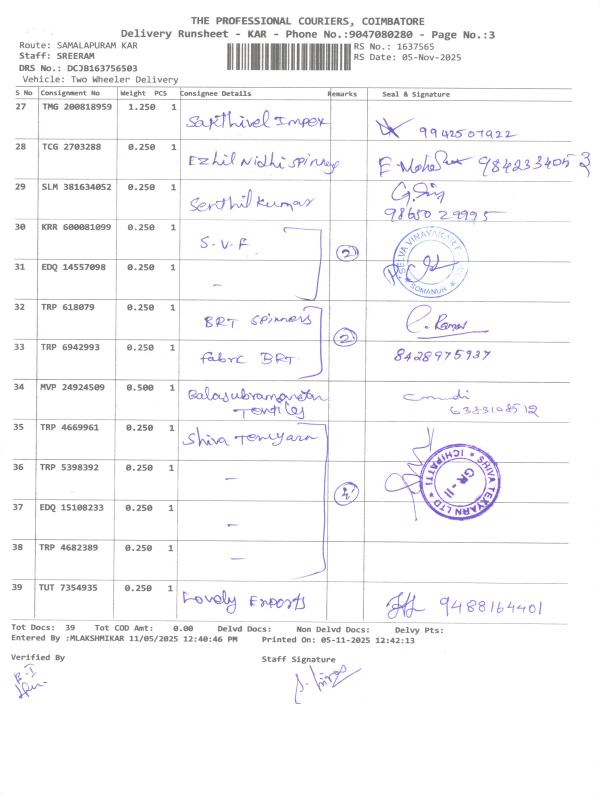 THE PROFESSIONAL COURIERS, COIMBATORE
Delivery Runsheet - KAR - Phone No.:9047080280 - Page No.:3
Route: SAMALAPURAM KAR RS No.: 1637565
Staff: SREERAM RS Date: 05-Nov-2025
DRS No.: DCJB163756503
Vehicle: Two Wheeler Delivery
S No Consignment No Weight PCS Consignee Details Remarks Seal & Signature
27 TMG 200818959 1.250 1 Sakthivel Impex 9942507922
28 TCG 2703288 0.250 1 Ezhil Nidhi Spinning 9842334053
29 SLM 381634052 0.250 1 Senthil kumar
9865029995
30 KRR 600081099 0.250 1 S.V.F 2 SELVA VINAYAKAR SOMANUR
31 EDQ 14557098 0.250 1 -
32 TRP 618079 0.250 1 BRT Spinners 2 Ramas
33 TRP 6942993 0.250 1 fabric BRT 8428975937
34 MVP 24924509 0.500 1 Balasubramaniam
Textiles 6383108512
35 TRP 4669961 0.250 1 Shiva Texyarn 4 SHIVA TEXYARN LTD ICHIPATTI GR-II
36 TRP 5398392 0.250 1 -
37 EDQ 15108233 0.250 1 -
38 TRP 4682389 0.250 1 -
39 TUT 7354935 0.250 1 Lovely Exports 9488164401
Tot Docs: 39 Tot COD Amt: 0.00 Delvd Docs: Non Delvd Docs: Delvy Pts:
Entered By :MLAKSHMIKAR 11/05/2025 12:40:46 PM Printed On: 05-11-2025 12:42:13
Verified By Staff Signature